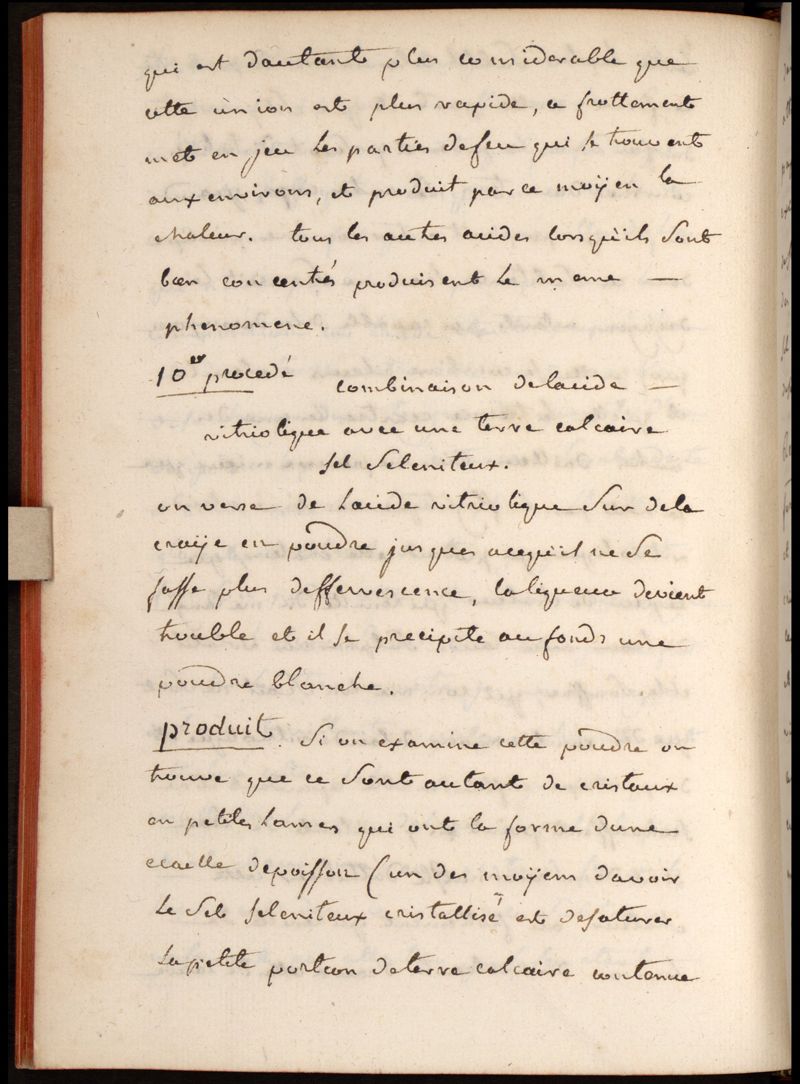 qui est dautant plus considerable que
cette union est plus rapide, ce frottement
met en jeu les parties de feu qui se trouvent
aux environs, et produit par ce moÿen la
chaleur. tous les autres acides lorsquils sont
bien concentrés produisent le meme —
phenomene.
10er procedé combinaison delacide —
vitriolique avec une terre calcaire
sel seleniteux.
on verse de lacide vitriolique sur dela
craÿe en poudre jusques acequil ne se
fasse plus deffervescence, laliqueur devient
trouble et il se precipite au fonds une
poudre blanche.
produit. Si on examine cette poudre on
trouve que ce sont autant de cristaux
en petites lames qui ont la forme dune
ecaelle depoisson (un des moÿens davoir
le sel seleniteux cristallisé est desaturer
la petite portion deterre calcaire contenue